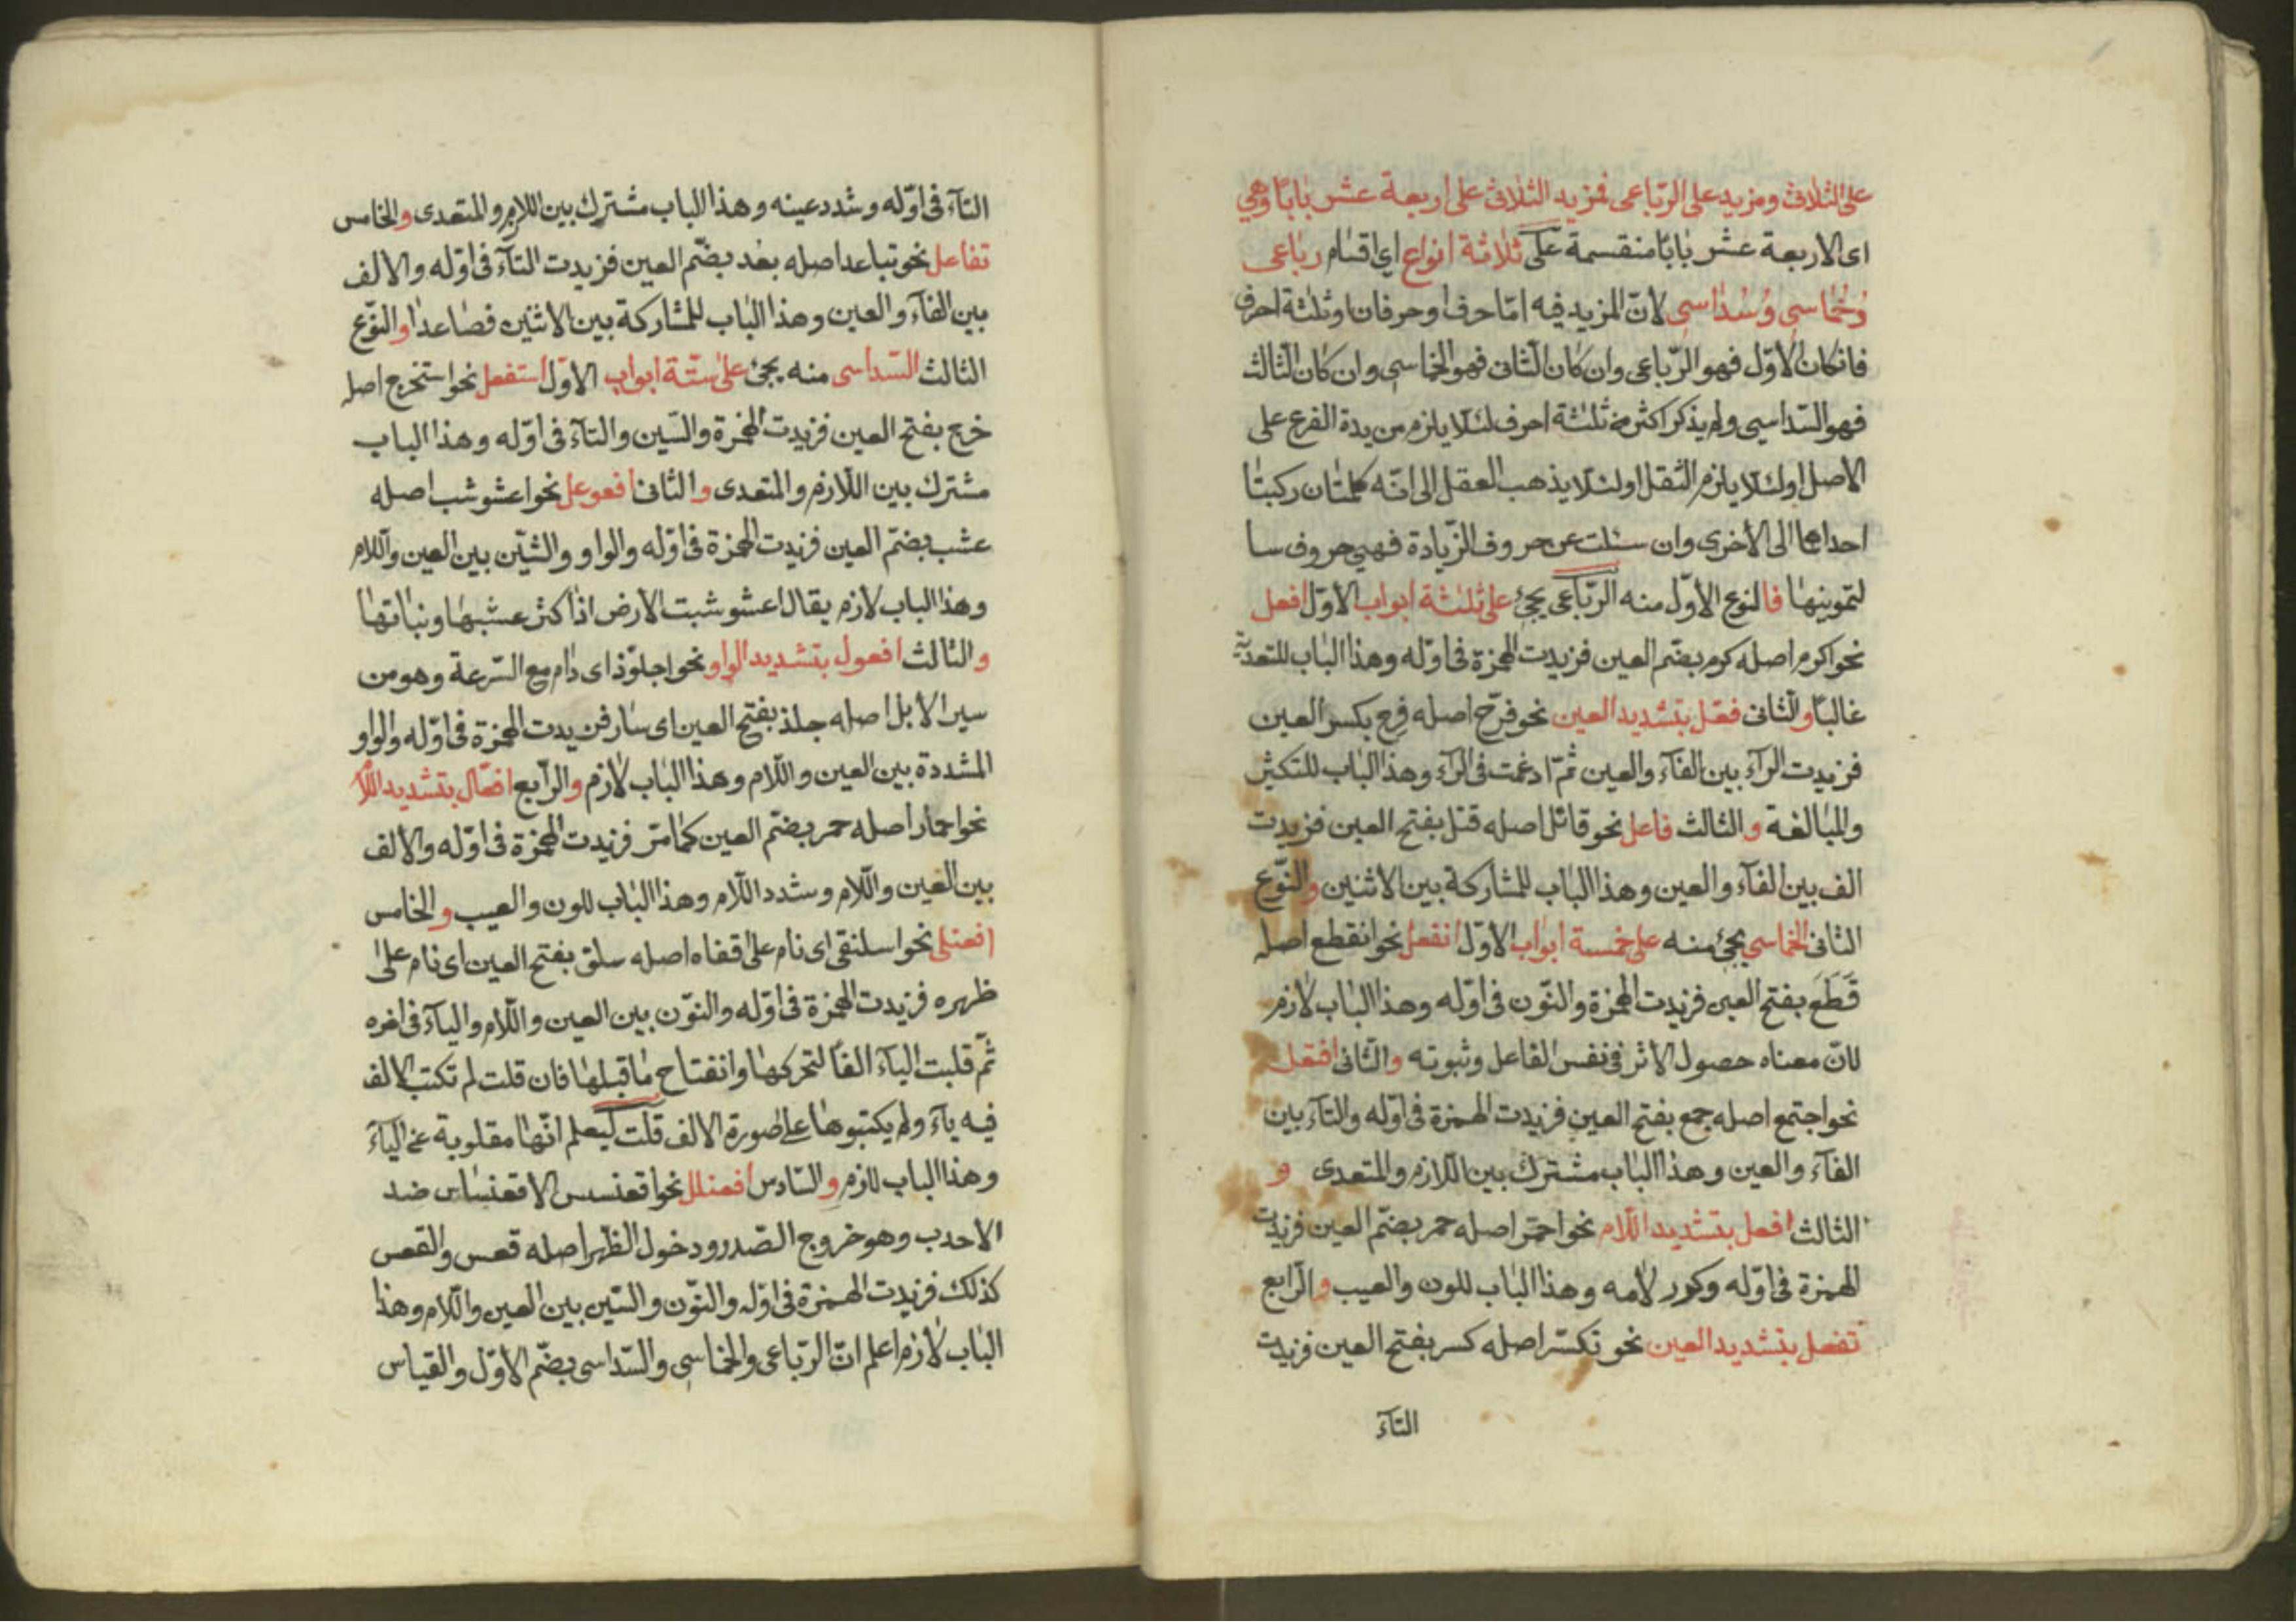 على الثلاث ومزيد على الرّباعى فمزيد الثلاث على اربعة عشر بابًا وهي
اى الاربعة عشر بابًا منقسمة على ثلاثة انواع اي اقسام رباعى
وخُماسي وسُداسي لانّ المزيد فيه امّا حرف او حرفان او ثلثة احرف
فان كان الاوّل فهو الرّباعى وان كان الثانى فهو الخماسي وان كان الثالث
فهو السّداسي ولم يذكر اكثر من ثلثة احرف لئلا يلزم مزيدة الفرع على
الاصل او لئلا يلزم الثقل او لئلا يذهب العقل الى انّه كلمتان ركبتا
احداهما الى الاخرى وان سئلت عن حروف الزّيادة فهي حروف سا
لتمونيها فالنوع الاوّل منه الرّباعى يجئ على ثلثة ابواب الاوّل افعل
نحو اكرم اصله كرم بضم العين فزيدت الهمزة فى اوّله وهذا الباب للتعدية
غالبًا والثانى فعّل بتشديد العين نحو فرّح اصله فرح بكسر العين
فزيدت الرآء بين الفآء والعين ثمّ ادغمت فى الرآء وهذا الباب للتكثير
والمبالغة والثالث فاعل نحو قاتل اصله قتل بفتح العين فزيدت
الف بين الفآء والعين وهذا الباب للمشاركة بين الاثنين والنّوع
الثانى الخماسي يجئ منه على خمسة ابواب الاوّل انفعل نحو انقطع اصله
قَطَعَ بفتح العين فزيدت الهمزة والنّون فى اوّله وهذا الباب لازم
لانّ معناه حصول الاثر فى نفس الفاعل وثبوته والثّانى افتعل
نحو اجتمع اصله جمع بفتح العين فزيدت الهمزة فى اوّله والتآء بين
الفآء والعين وهذا الباب مشترك بين اللازم والمتعدى و
الثالث افعل بتشديد اللام نحو احمّر اصله حمر بضمّ العين فزيدت
الهمزة فى اوّله وكرر لامه وهذا الباب للون والعيب والرّابع
تفعل بتشديد العين نحو تكسّر اصله كسر بفتح العين فزيدت
التآء
التآء فى اوّله وشدد عينه وهذا الباب مشترك بين اللازم والمتعدى والخامس
تفاعل نحو تباعد اصله بعُد بضمّ العين فزيدت التآء فى اوّله والالف
بين الفآء والعين وهذا الباب للمشاركة بين الاثنين فصاعدا والنّوع
الثالث السّداسى منه يجئ على ستّة ابواب الاوّل استفعل نحو استخرج اصله
خرج بفتح العين فزيدت الهمزة والسّين والتآء فى اوّله وهذا الباب
مشترك بين اللّازم والمتعدى والثانى افعوعل نحو اعشوشب اصله
عشب بضمّ العين فزيدت الهمزة فى اوّله والواو والشّين بين العين واللام
وهذا الباب لازم يقال اعشوشبت الارض اذا كثر عشبها ونباتها
والثالث افعول بتشديد الواو نحو اجلوّذ اى دام مع السّرعة وهو من
سير الابل اصله جلذ بفتح العين اى سار فزيدت الهمزة فى اوّله والواو
المشددة بين العين واللّام وهذا الباب لازم والرّابع افعّال بتشديد اللّام
نحو احمار اصله حمر بضمّ العين كما مرّ فزيدت الهمزة فى اوّله والالف
بين العين واللّام وشدد اللّام وهذا الباب للون والعيب والخامس
افعنلى نحو اسلنقى اى نام على قفاه اصله سلق بفتح العين اى نام على
ظهره فزيدت الهمزة فى اوّله والنّون بين العين واللّام واليآء فى اخره
ثمّ قلبت اليآء الفًا لتحركها وانفتاح ما قبلها فان قلت لم تكتب الالف
فيه ياء ولم يكتبوها على صورة الالف قلت ليعلم انّها مقلوبة عن اليآء
وهذا الباب لازم والسّادس افعنلل نحو اقعنسس الاقعنساس ضد
الاحدب وهو خروج الصّدر ودخول الظّهر اصله قعس والقعس
كذلك فزيدت الهمزة فى اوّله والنّون والسّين بين العين واللّام وهذا
الباب لازم اعلم انّ الرّباعى والخماسي والسّداسى بضّم الاوّل والقياس